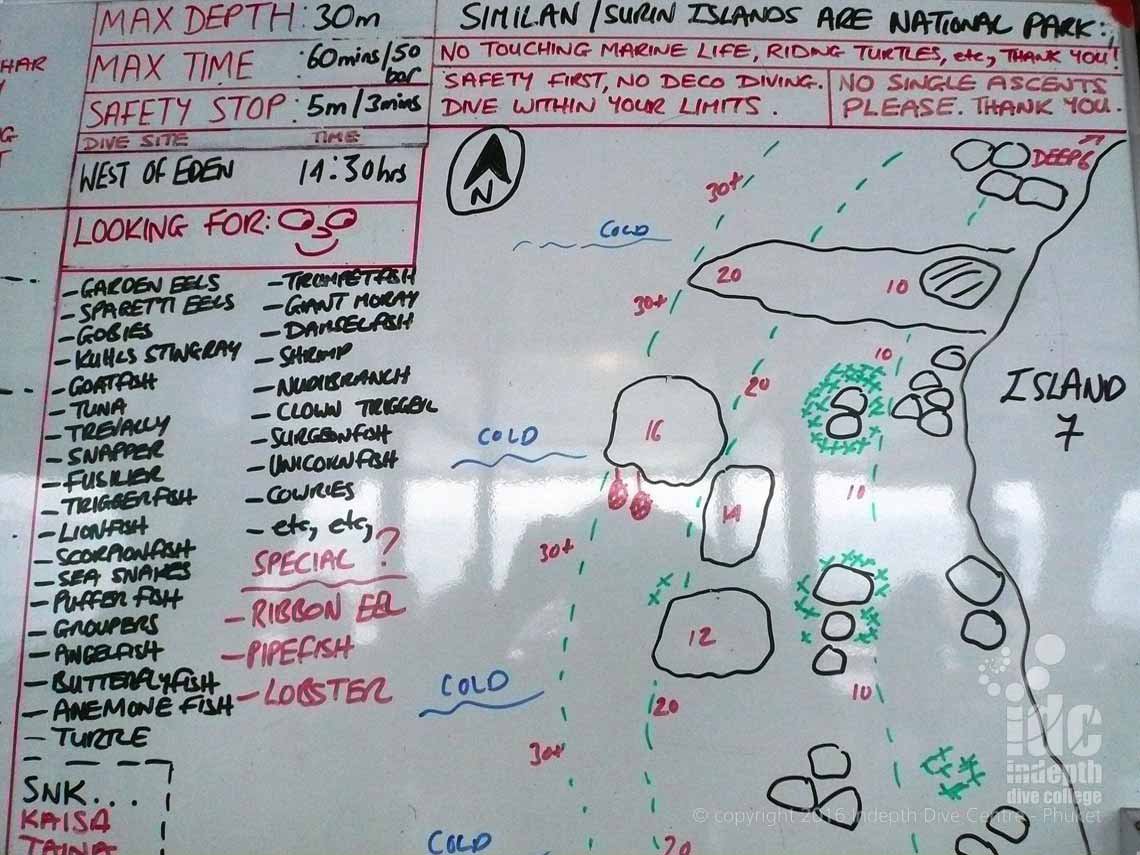 HAR
Y
G
T
MAX DEPTH: 30m
MAX TIME : 60mins/50 bar
SAFETY STOP: 5m/3mins
DIVE SITE TIME
WEST OF EDEN 14:30hrs
LOOKING FOR:
- GARDEN EELS
- SPAGETTI EELS
- GOBIES
- KUHLS STINGRAY
- GOATFISH
- TUNA
- TREVALLY
- SNAPPER
- FUSILIER
- TRIGGERFISH
- LIONFISH
- SCORPIONFISH
- SEA SNAKES
- PUFFER FISH
- GROUPERS
- ANGELFISH
- BUTTERFLYFISH
- ANEMONE FISH
- TURTLE
- TRUMPETFISH
- GIANT MORAY
- DAMSELFISH
- SHRIMP
- NUDIBRANCH
- CLOWN TRIGGER
- SURGEONFISH
- UNICORNFISH
- COWRIES
- etc, etc,
SPECIAL ?
- RIBBON EEL
- PIPEFISH
- LOBSTER
SNK...
KAISA
TAINA
SIMILAN/SURIN ISLANDS ARE NATIONAL PARK:
NO TOUCHING MARINE LIFE, RIDING TURTLES, etc, THANK YOU!
SAFETY FIRST, NO DECO DIVING.
DIVE WITHIN YOUR LIMITS.
NO SINGLE ASCENTS
PLEASE. THANK YOU.
N
DEEP6
30+
COLD
20
10
30+
10
20
ISLAND
7
16
COLD
10
14
30+
12
COLD
10
20
30+
COLD
20
idc
indepth
dive college
© copyright 2016 Indepth Dive Centre - Phuket